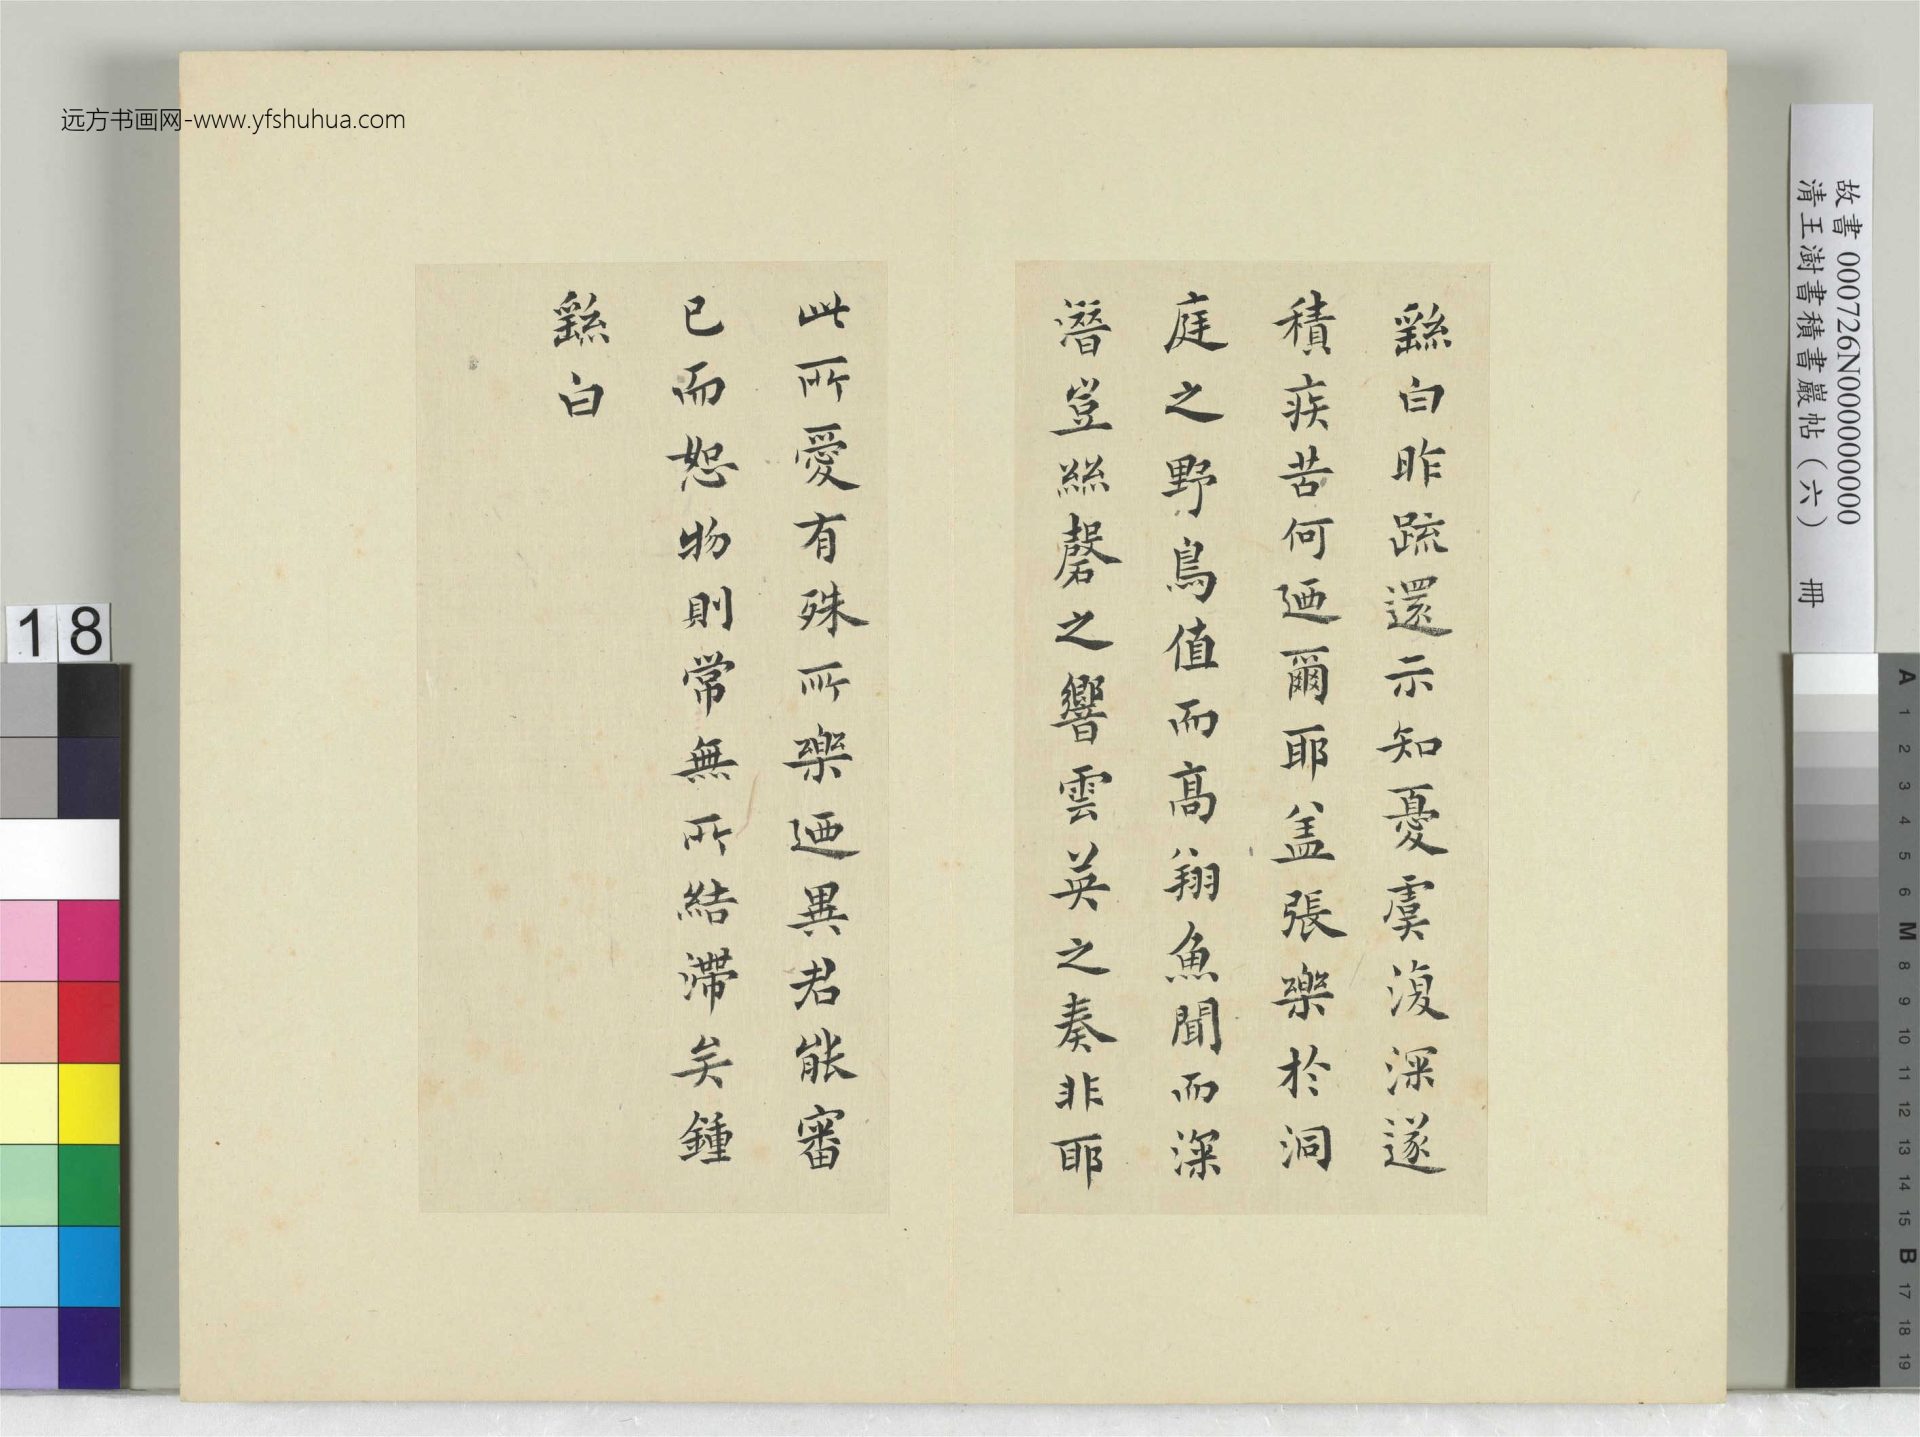 远方书画网-www.yfshuhua.com
繇白昨疏還示知憂虞復深遂
積疾苦何廼爾耶盖張樂於洞
庭之野鳥值而高翔魚聞而深
潛豈絲磬之響雲英之奏非耶
此所愛有殊所樂廼異君能審
已而恕物則常無所結滯矣鍾
繇白
故書 000726N000000000
清王澍書積書巖帖(六) 冊
18
A
1
2
3
4
5
6
M
8
9
10
11
12
13
14
15
B
17
18
19